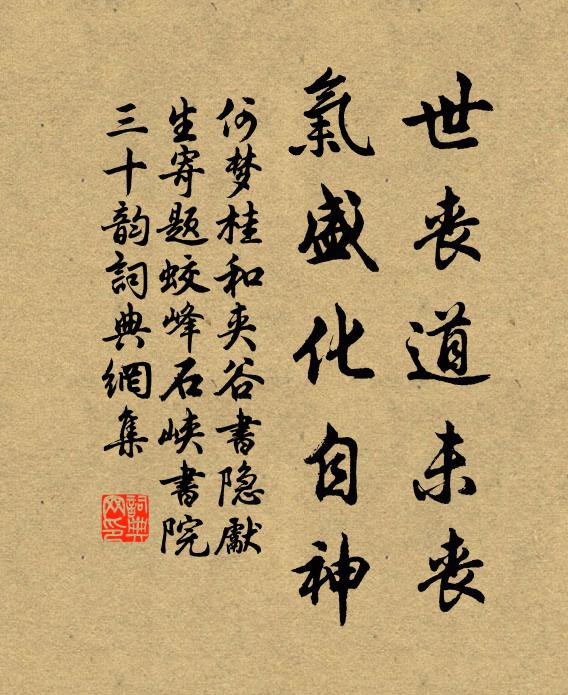 世丧道未丧
氣盛化自神
何梦桂和夹谷書隐獻
生寄题蛟峰石峡書院
三十韵詞典網集
詞典
网印